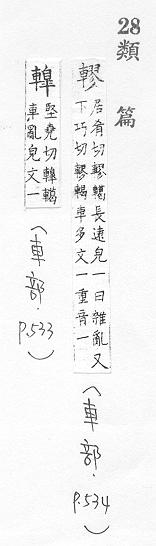 28
類篇
轇 居肴切轇轕長遠皃一曰雜亂又
下巧切轇轕車多文一重音一
(車部.P.534)
堅堯切 轕
車亂皃文一
(車部.P.533)